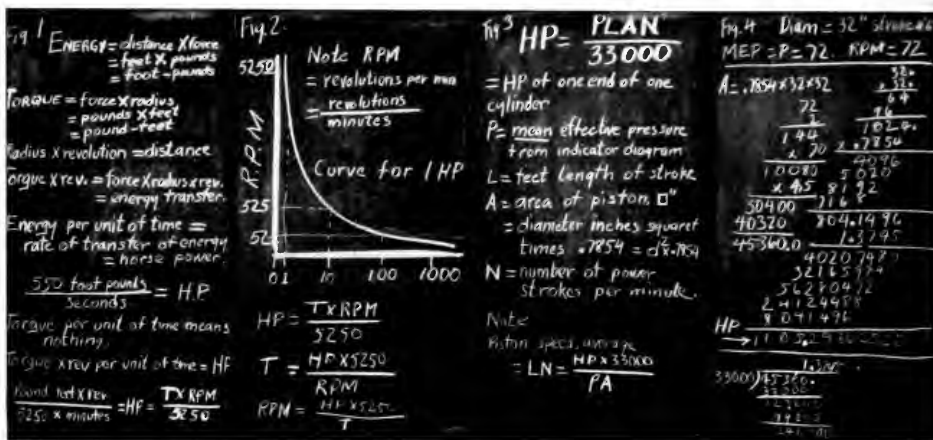 Fig 1
ENERGY = distance X force
= feet X pounds
= foot-pounds
TORQUE = force X radius
= pounds X feet
= pound-feet
Radius X revolution = distance
Torque X rev. = force X radius X rev.
= energy transfer.
Energy per unit of time =
rate of transfer of energy
= horse power.
550 foot pounds
seconds
= H.P
Torque per unit of time means
nothing.
Torque X rev per unit of time = HP
Pound feet X rev
5250 X minutes
= HP = TXRPM
5250
Fig. 2.
Note RPM
= revolutions per min
= revolutions
minutes
5250
R.P.M
Curve for 1 HP
525
52
0 1 10 100 1000
HP = TXRPM
5250
T = HP X 5250
RPM
RPM = HP X 5250
T
Fig 3
HP = PLAN
33000
= HP of one end of one
cylinder
P = mean effective pressure
from indicator diagram
L = feet length of stroke
A = area of piston □"
= diameter inches squared
times .7854 = d² x .7854
N = number of power
strokes per minute.
Note
Piston speed, average
= LN = HP X 33000
PA
Fig. 4 Diam = 32" stroke
MEP = P = 72. RPM = 72
A = .7854 X 32 X 32
32.
32.
64
96
1024.
x .7854
4096
5020
8192
7168
804.1496
72
2
144
x 70
10080
x 4.5
50400
40320
45360.0
1.3745
40207480
32165984
56290472
24124488
8041496
HP
33000